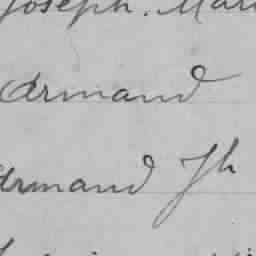 Joseph. Mari
Armand
Armand Jh